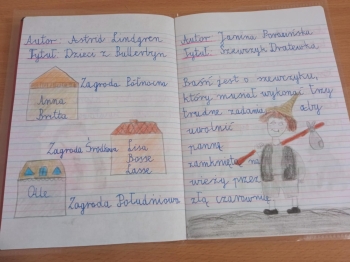 Autor: Astrid Lindgren
Tytuł: Dzieci z Bullerbyn
Zagroda Północna
Anna
Britta
Zagroda Środkowa
Lisa
Bosse
Lasse
Olle
Zagroda Południowa
Autor: Janina Porazińska
Tytuł: Szewczyk Dratewka
Baśń jest o szewczyku,
który musiał wykonać trzy
trudne zadania aby
uwolnić
pannę
zamkniętą na
wieży przez
złą czarownicę.